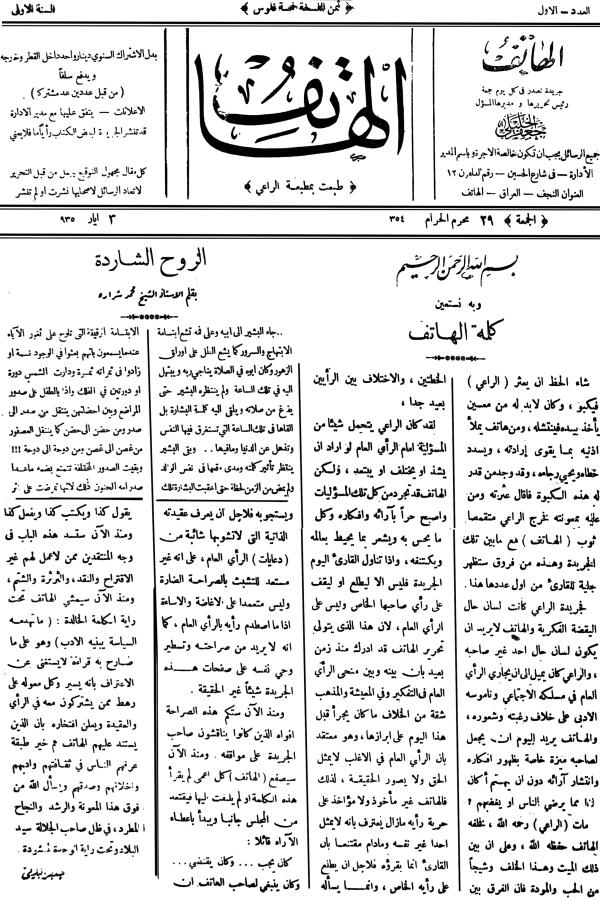 العدد – الاول
﴿ ثمن النسخة خمسة فلوس ﴾
السنة الاولى
الهاتف
جريدة تصدر في كل يوم جمعة
رئيس تحريرها ومديرها المسؤل
جعفر الخليلي
جميع الرسائل يجب ان تكون خالصة الاجرة وباسم المدير
الأدارة – في شارع الحسين – رقم
العنوان النجف – العراق – الهاتف
الهاتف
﴿ طبعت بمطبعة الراعي ﴾
بدل الاشتراك السنوي دينار واحد داخل القطر وخارجه
ويدفع سلفاً
( من قبل عددين عد مشتركا )
الاعلانات – يتفق عليها مع مدير الادارة
كل مقال مجهول التوقيع يهمل من قبل التحرير
لاتعاد الرسائل لاصحابها نشرت او لم تنشر
﴿ الجمعة ﴾ ٢٩ محرم الحرام ٣٥٤
٣ ايار ٩٣٥
بسم الله الرحمن الرحيم
وبه نستعين
كلمة الهاتف
شاء الحظ ان يعثر ( الراعي )
فيكبو ، وكان لابد له من معين
يأخذ بيده فينتشله ، ومن هاتف يملأ
اذنيه بما يقوى إرادته ، ويسدد
خطاه ويحيي رجاءه ، وقد وجد من قدر
له هذه الكبوة فاقال عثرته ومن
عليه بمعونته فخرج الراعي متقمصا
ثوب ( الهاتف ) مع مابين تلك
الجريدة وهذه من فروق ستظهر
جلية للقارئ من اول عددها هذا .
فجريدة الراعي كانت لسان حال
اليقضة الفكرية والهاتف لا يريد ان
يكون لسان حال احد غير صاحبه
، والراعي كان يميل الى ان يجاري الرأي
العام في مسلكه الاجتماعي وناموسه
الادبي على خلاف رغبته وشعوره ،
والهاتف يريد اليوم ان يجعل
لصاحبه ميزة خاصة بظهور افكاره
وانتشار آرائه دون ان يهتم أكان
هذا مما يرضي الناس او يغضبهم ؟
مات ( الراعي ) رحمه الله ، فخلفه
الهاتف حفظه الله ، وبين ان
ذلك الميت وهذا الخلف وشيجاً
من الحب والمودة فان الفرق بين
الخطتين ، والاختلاف بين الرأيين
بعيد جدا ،
لقد كان الراعي يتحمل شيئا من
المسؤلية امام الرأي العام لو اراد ان
يشذ او يختلف او يبتعد ، ولكن
الهاتف قد تجرد من كل تلك المسؤليات
واصبح حراً بآرائه وافكاره وكل
ما يحس به ويشعر بما يحيط بعالمه
ويكتنفه ، واذا تناول القارئ اليوم
الجريدة فليس الا ليطلع او ليقف
على رأي صاحبها الخاص وليس على
الرأي العام ، لان هذا الذي يتولى
تحرير الهاتف قد ادرك منذ زمن
بعيد بان بينه وبين منحى الرأي
العام في التفكير وفي المعيشة والمذهب
شقة من الخلاف ما كان يجرأ قبل
هذا اليوم على ابرازها ، وهو معتقد
بان الرأي العام في الاغلب لا يمثل
الحق ولا يصور الحقيقة ، لذلك
فالهاتف غير مأخوذ ولا مؤاخذ على
حرية رأيه مازال يعترف بانه لا يمثل
احدا غير نفسه ومادام مقتنعا بان
القارئ انما يقرؤه فلاجل ان يطلع
على رأيه الخاص ، وانما يسأله
ويستجوبه فلاجل ان يعرف عقيدته
الذاتية التي لاتشوبها شائبة من
( دعايات ) الرأي العام ، على انه غير
مستعد للتشبث بالصراحة الضارة
وليس متعمدا على الاغاضة والاساءة
اذا ما اصطدم رأيه بالرأي العام ، كما
انه لا يريد من صراحته وتسطير
وحي نفسه على صفحات هذه
الجريدة شيئاً غير الحقيقة .
ومنذ الآن ستكم هذه الصراحة
افواه الذين كانوا يناقشون صاحب
الجريدة على مواقفه . ومنذ الآن
سيصفع ( الهاتف ) كل اعمى لم يقرأ
هذه الكلمة او لم يلتفت اليها فيقتعد
من المجلس جانبا ويبدأ باعطاء
الآراء قائلا :
كان يجب ... وكان يقتضي ...
وكان ينبغي لصاحب الهاتف ان
يقول كذا ويكتب كذا ويفعل كذا
ومنذ الآن سقسد هذه الباب في
وجه المنتقدين ممن لاعمل لهم غير
الاقتراح والنقد ، والثرثرة والشتم ،
ومنذ الآن سيمشي الهاتف تحت
راية الكلمة الخالدة : ( ماتهدمه
السياسة يبنيه الادب ) وهو على ما
ضارح به قراءه لا يستغنى عن
الاعتراف بانه يسير وكل معوله على
رهط ممن يشتركون معه في الرأي
والعقيدة ويعلن افتخاره بان الذين
يستند عليهم الهاتف هم خير طبقة
عرفهم الناس في ثقافتهم وادبهم
واخلاقهم وصدقهم ونسأل الله من
فوق هذا المعونة والرشد والنجاح
المطرد ، في ظل صاحب الجلالة سيد
البلاد وتحت راية الوحدة المنشودة .
جعفر الخليلي
الروح الشاردة
بقلم الاستاذ الشيخ محمد شراره
.. جاء البشير الى ابيه وعلى فمه تشع ابتسامة
الابتهاج والسرور كما يشع الطل على اوراق
الزهور وكان ابوه في الصلاة يناجي ربه ويبتهل
اليه في تلك الساعة ولم ينتظره البشير حتى
يفرغ من صلاته ويلقى اليه كلمة البشارة بل
القاها في تلك الساعة التي تستغرق فيها النفس
وتذهل عن الدنيا ومافيها .. وبقي البشير
ينتظر تأثير كلمته ومدى وقعها في نفس الوالد
ولم يمض من الزمن لحظة حتى اعقبت البشارة تلك
الابتسامة الرقيقة التي تلوح على ثغور الآباء
عندما يسمعون بانهم بعثوا في الوجود نسمة او
زادوا في ثمراته ثمرة ودارت الشمس دورة
او دورتين في الفلك واذا بالطفل على صدور
المراضع وبين احضانهن ينتقل من صدر الى
صدر ومن حضن الى حضن كما ينتقل العصفور
من غصن الى غصن ومن دوحة الى دوحة !!!
وبقيت الصدور المختلفة تتبع بضمه ماعدا
صدر امه الحنون ذلك لانها تمرضت على اثر